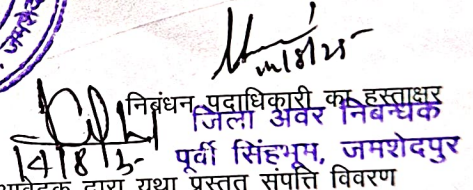 जमशेद
14/8/25
निबंधन पदाधिकारी का हस्ताक्षर
जिला अवर निबन्धक
14/8/25
पूर्वी सिंहभूम, जमशेदपुर
आवेदक द्वारा यथा प्रस्तुत संपत्ति विवरण